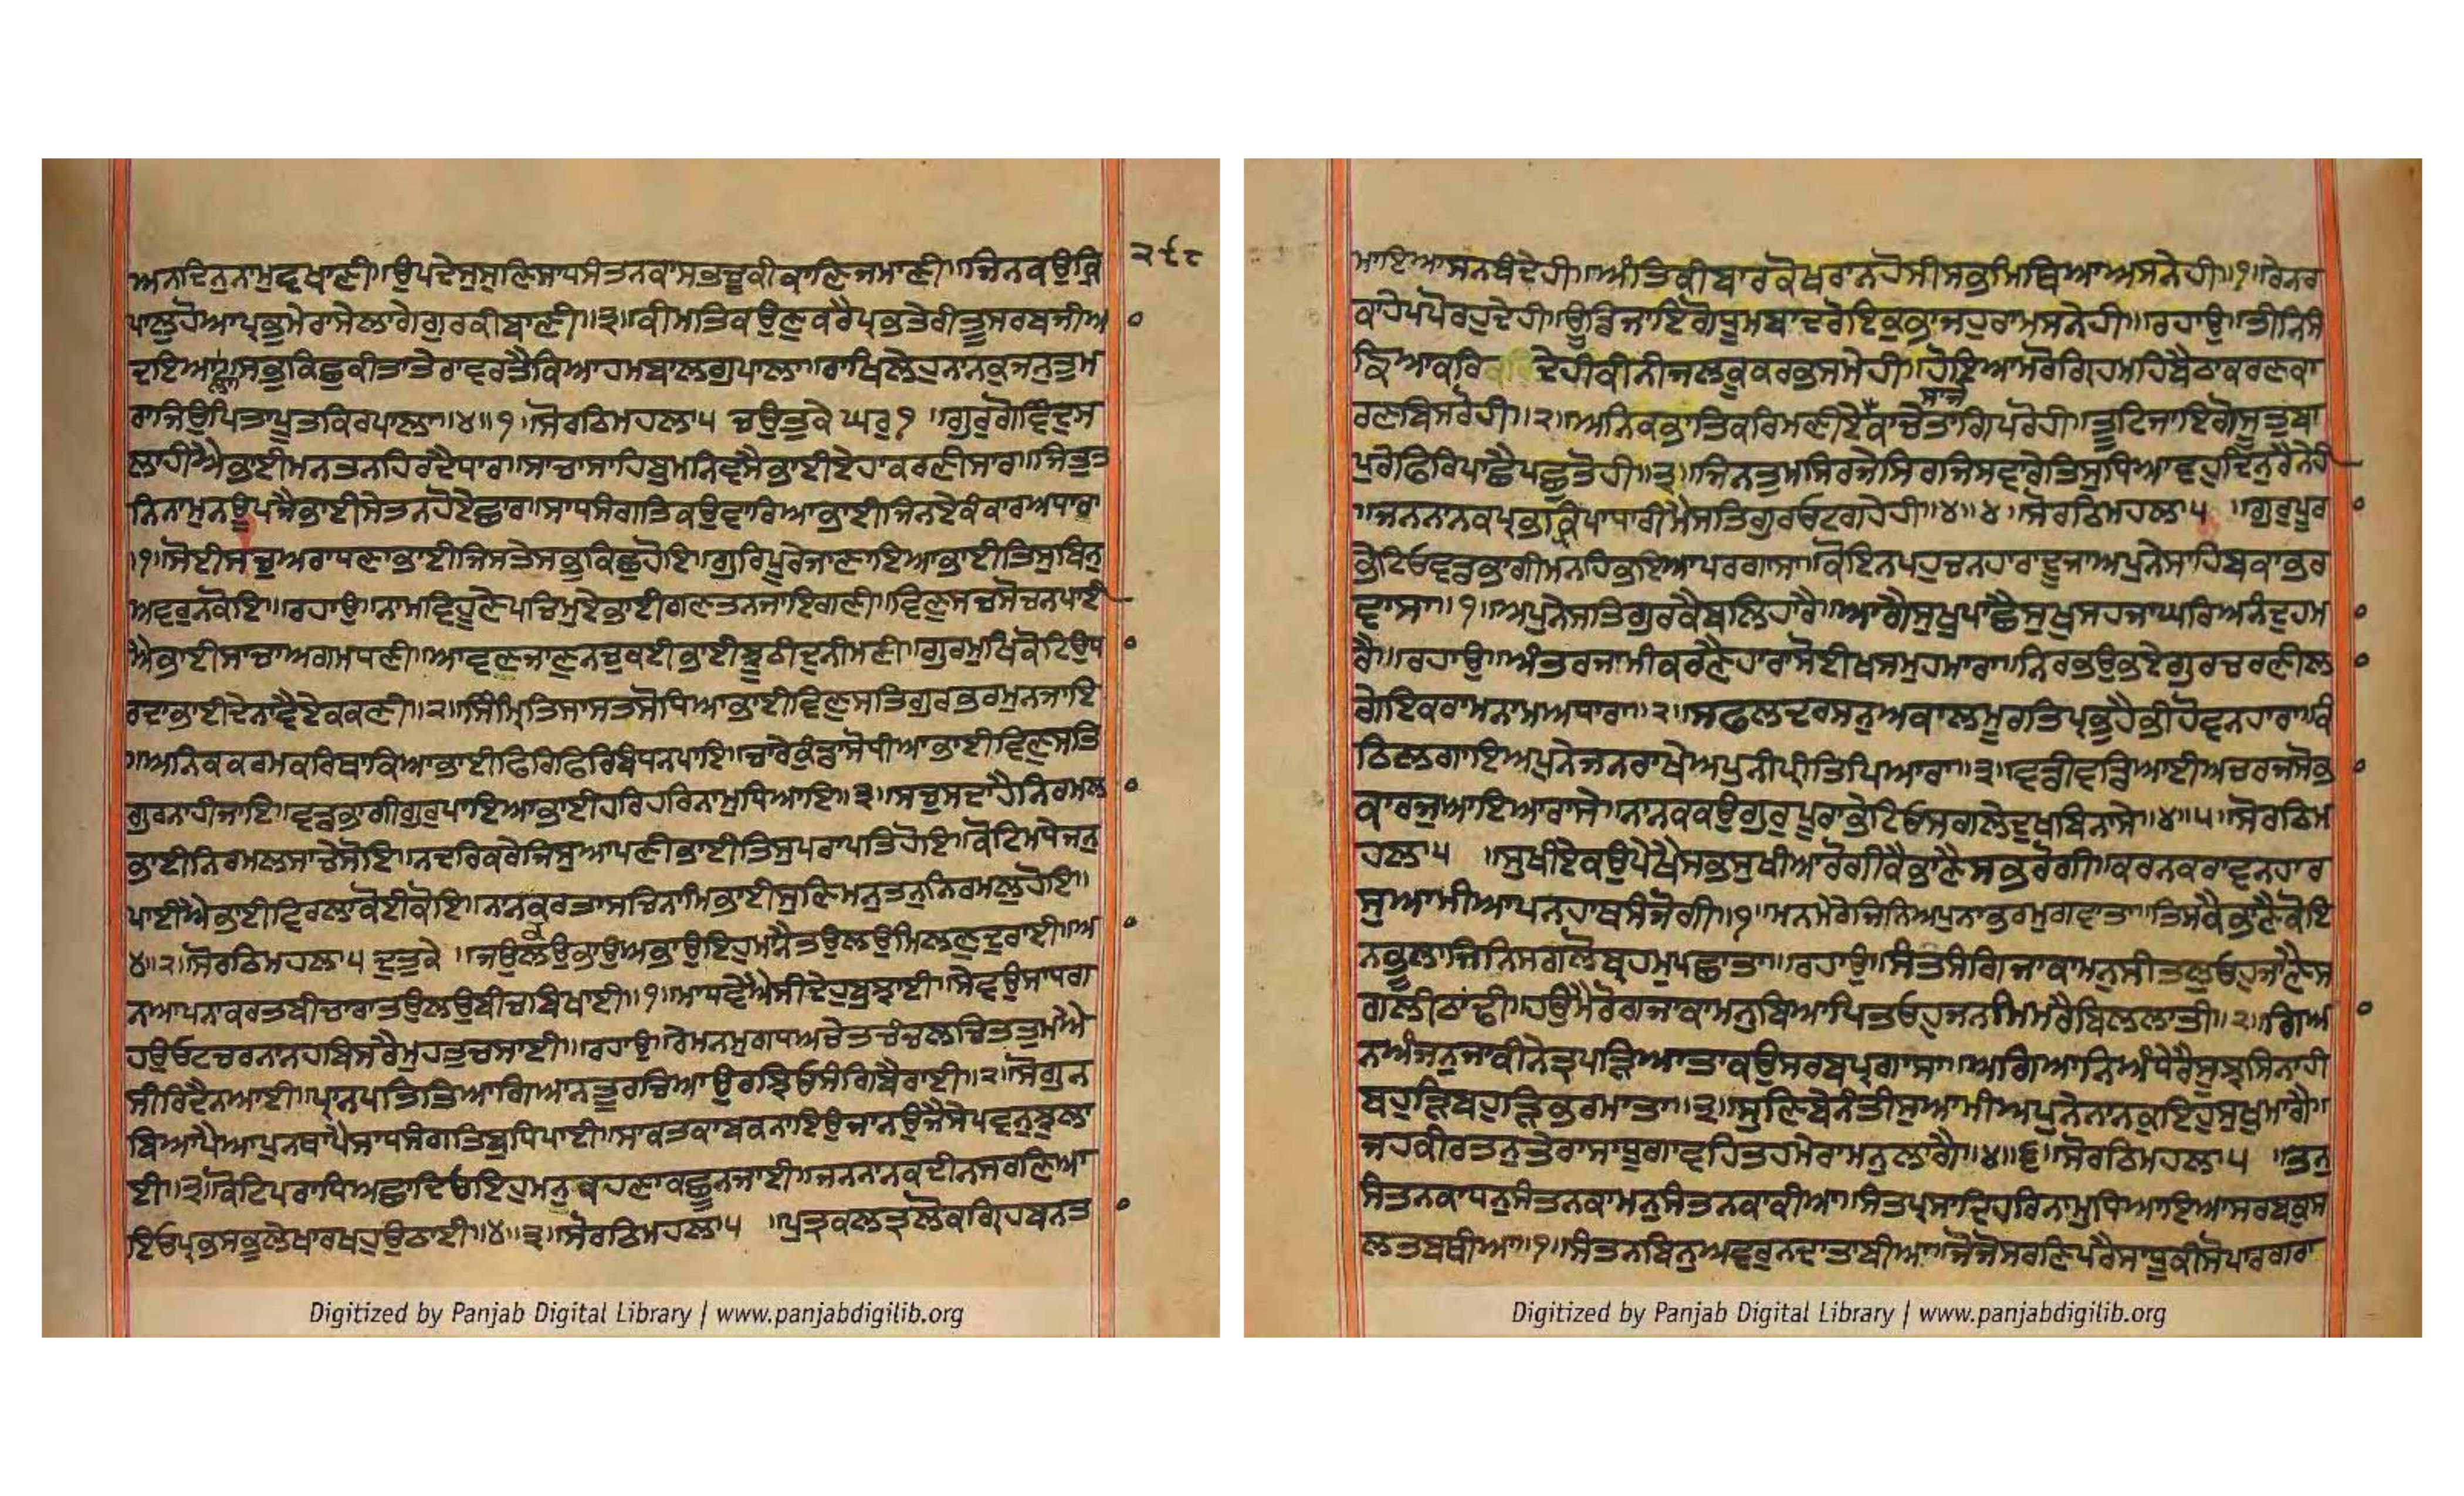 ਅਨਦਿਨੁਨਾਮੁਵਖਾਣੀ॥ਉਪਦੇਸੁਸੁਣਿਸਾਧਸੰਤਨਕਾਸਭਚੂਕੀਕਾਣਿਜਮਾਣੀ॥ਜਿਨਕਉਕ੍ਰਿ
੨੯੮
ਪਾਲੁਹੋਆਪ੍ਰਭੁਮੇਰਾਸੇਲਾਗੇਗੁਰਕੀਬਾਣੀ॥੩॥ਕੀਮਤਿਕਉਣੁਕਰੈਪ੍ਰਭਤੇਰੀਤੂਸਰਬਜੀਅ
ਦਇਆਲਾ॥ਸਭੁਕਿਛੁਕੀਤਾਤੇਰਾਵਰਤੈਕਿਆਹਮਬਾਲਗੁਪਾਲਾ॥ਰਾਖਿਲੇਹੁਨਾਨਕੁਜਨੁਤੁਮ
ਰਾਜਿਉਪਿਤਾਪੂਤਕਿਰਪਾਲਾ॥੪॥੧॥ਸੋਰਠਿਮਹਲਾ੫ ਚਉਤੁਕੇ ਘਰੁ੧ ॥ਗੁਰੁਗੋਵਿੰਦੁਸ
ਲਾਹੀਐਭਾਈਮਨਤਨਹਿਰਦੈਧਾਰ॥ਸਾਚਾਸਾਹਿਬੁਮਨਿਵਸੈਭਾਈਏਹਾਕਰਣੀਸਾਰ॥ਜਿਤੁਤ
ਨਿਨਾਮੁਨਊਪਜੈਭਾਈਸੇਤਨਹੋਏਛਾਰ॥ਸਾਧਸੰਗਤਿਕਉਵਾਰਿਆਭਾਈਜਿਨਏਕੰਕਾਰਅਧਾਰ
॥੧॥ਸੋਈਸਚੁਅਰਾਧਣਾਭਾਈਜਿਸਤੇਸਭੁਕਿਛੁਹੋਇ॥ਗੁਰਿਪੂਰੈਜਾਣਾਇਆਭਾਈਤਿਸੁਬਿਨੁ
ਅਵਰੁਨਕੋਇ॥ਰਹਾਉ॥ਨਾਮਵਿਹੂਣੇਪਚਿਮੁਏਭਾਈਗਣਤਨਜਾਇਗਣੀ॥ਵਿਣੁਸਚਸੋਚਨਪਾਈ
ਐਭਾਈਸਾਚਾਅਗਮਧਣੀ॥ਆਵਣਜਾਣੁਨਚੁਕਈਭਾਈਝੂਠੀਦੁਨੀਮਣੀ॥ਗੁਰਮੁਖਿਕੋਟਿਉਧ
ਰਦਾਭਾਈਦੇਨਾਵੈਏਕਕਣੀ॥੨॥ਸਿੰਮ੍ਰਿਤਿਸਾਸਤਸੋਧਿਆਭਾਈਵਿਣੁਸਤਿਗੁਰਭਰਮੁਨਜਾਇ
॥ਅਨਿਕਕਰਮਕਰਿਥਾਕਿਆਭਾਈਫਿਰਿਫਿਰਿਬੰਧਨਪਾਇ॥ਚਾਰੇਕੁੰਡਾਸੋਧੀਆਭਾਈਵਿਣੁਸਤਿ
ਗੁਰਨਾਹੀਜਾਇ॥ਵਡਭਾਗੀਗੁਰੁਪਾਇਆਭਾਈਹਰਿਹਰਿਨਾਮੁਧਿਆਇ॥੩॥ਸਚੁਸਦਾਹੈਨਿਰਮਲ
ਭਾਈਨਿਰਮਲਸਾਚੇਸੋਇ॥ਨਦਰਿਕਰੇਜਿਸੁਆਪਣੀਭਾਈਤਿਸੁਪਰਾਪਤਿਹੋਇ॥ਕੋਟਿਮਧੇਜਨੁ
ਪਾਈਐਭਾਈਵਿਰਲਾਕੋਈਕੋਇ॥ਨਾਨਕਰਤਾਸਚਿਨਾਮਿਭਾਈਸੁਣਿਮਨੁਤਨੁਨਿਰਮਲੁਹੋਇ॥
੪॥੨॥ਸੋਰਠਿਮਹਲਾ੫ ਦੁਤੁਕੇ ॥ਜਉਲਉਭਾਉਅਭਾਉਇਹੁਮਾਨੈਤਉਲਉਮਿਲਣੁਦੂਰਾਈ॥ਆ
ਨਆਪਨਾਕਰਤਬੀਚਾਰਾਤਉਲਉਬੀਚੁਬਿਖਾਈ॥੧॥ਮਾਧਵੇਐਸੀਦੇਹੁਬੁਝਾਈ॥ਸੇਵਉਸਾਧਗ
ਹਉਓਟਚਰਨਾਨਹਬਿਸਰੈਮੁਹਤੁਚਸਾਈ॥ਰਹਾਉ॥ਰੇਮਨਮੁਗਧਅਚੇਤਚੰਚਲਚਿਤਤੁਮਐਐ
ਸੀਰਿਦੈਨਆਈ॥ਪ੍ਰਾਨਪਤਿਤਿਆਗਿਆਨਤੂਰਚਿਆਉਰਝਿਓਸੰਗਿਬੈਰਾਈ॥੨॥ਸੋਗੁਨ
ਬਿਆਪੈਆਪੁਨਥਾਪੈਸਾਧਸੰਗਤਿਬੁਧਿਪਾਈ॥ਸਾਕਤਕਾਬਕਨਾਇਉਜਾਨਉਜੈਸੇਪਵਨੁਝੁਲਾ
ਈ॥੩॥ਕੋਟਿਪਰਾਧਅਛਾਦਿਓਇਹੁਮਨੁਕਹਣਾਕਛੂਨਜਾਈ॥ਜਨਨਾਨਕਦੀਨਸਰਣਿਆ
ਇਓਪ੍ਰਭਸਭੁਲੇਖਾਰਖਹੁਉਠਾਈ॥੪॥੩॥ਸੋਰਠਿਮਹਲਾ੫ ॥ਪੁਤ੍ਰਕਲਤ੍ਰਲੋਕਗ੍ਰਿਹਬਨਤ
ਮਾਇਆਸਨਬੰਧੇਹੀ॥ਅੰਤਿਕੀਬਾਰਕੋਖਰਾਨਹੋਸੀਸਭਮਿਥਿਆਅਸਨੇਹੀ॥੧॥ਰੇਨਰ
ਕਾਹੇਪਪੋਰਹੁਦੇਹੀ॥ਊਡਿਜਾਇਗੋਧੂਮਬਾਦਰੋਇਕੁਭਾਜਹੁਰਾਮਸਨੇਹੀ॥ਰਹਾਉ॥ਤੀਨਿਸੰ
ਙਿਆਕਰਿਦੇਹੀਕੀਨੀਜਲਕੂਕਰਭਸਮੇਹੀ॥ਹੋਇਆਮਰੋਗ੍ਰਿਹਮਹਿਬੈਠਾਕਰਣਕਾ
ਸਾਜੇ
ਰਣਬਿਸਰੋਹੀ॥੨॥ਅਨਿਕਭਾਤਿਕਰਿਮਣੀਏਕਾਚੈਤਾਗਿਪਰੋਹੀ॥ਤੂਟਿਜਾਇਗੋਸੂਤੁਬਾ
ਪੁਰੇਫਿਰਿਪਾਛੈਪਛੁਤੋਹੀ॥੩॥ਜਿਨਤੁਮਸਿਰਜੇਸਿਰਜਿਸਵਾਰੇਤਿਸੁਧਿਆਵਹੁਦਿਨੁਰੈਨੇਹੀ
॥ਜਨਨਾਨਕਪ੍ਰਭਕਿਰਪਾਧਾਰੀਮੈਸਤਿਗੁਰਓਟਗਹੇਹੀ॥੪॥੪॥ਸੋਰਠਿਮਹਲਾ੫ ॥ਗੁਰੁਪੂਰਾ
ਭੇਟਿਓਵਡਭਾਗੀਮਨਹਿਭਇਆਪਰਗਾਸਾ॥ਕੋਇਨਪਹੁਚਨਹਾਰਾਦੂਜਾਅਪੁਨੇਸਾਹਿਬਕਾਭਰ
ਵਾਸਾ॥੧॥ਅਪੁਨੇਸਤਿਗੁਰਕੈਬਲਿਹਾਰੈ॥ਆਗੈਸੁਖੁਪਾਛੈਸੁਖੁਸਹਜਾਘਰਿਅਨੰਦੁਹਮ
ਰੈ॥ਰਹਾਉ॥ਅੰਤਰਜਾਮੀਕਰਣੈਹਾਰਾਸੋਈਖਸਮੁਹਮਾਰਾ॥ਨਿਰਭਉਭਏਗੁਰਚਰਣੀਲਾ
ਗੇਇਕਰਾਮਨਾਮਅਧਾਰਾ॥੨॥ਸਫਲਦਰਸਨੁਅਕਾਲਮੂਰਤਿਪ੍ਰਭੁਹੈਭੀਹੋਵਨਹਾਰਾ॥ਕੰ
ਠਿਲਗਾਇਅਪੁਨੇਜਨਰਾਖੇਅਪੁਨੀਪ੍ਰੀਤਿਪਿਆਰਾ॥੩॥ਵਡੀਵਡਿਆਈਅਚਰਜਸੋਭਾ
ਕਾਰਜੁਆਇਆਰਾਸੇ॥ਨਾਨਕਕਉਗੁਰੁਪੂਰਾਭੇਟਿਓਸਗਲੇਦੂਖਬਿਨਾਸੇ॥੪॥੫॥ਸੋਰਠਿਮ
ਹਲਾ੫ ॥ਸੁਖੀਏਕਉਪੇਖੈਸਭਸੁਖੀਆਰੋਗੀਕੈਭਾਣੈਸਭਰੋਗੀ॥ਕਰਨਕਰਾਵਨਹਾਰ
ਸੁਆਮੀਆਪਨਹਾਥਸੰਜੋਗੀ॥੧॥ਮਨਮੇਰੇਜਿਨਿਅਪੁਨਾਭਰਮੁਗਵਾਤਾ॥ਤਿਸਕੈਭਾਣੈਕੋਇ
ਨਭੂਲਾਜਿਨਿਸਗਲੋਬ੍ਰਹਮੁਪਛਾਤਾ॥ਰਹਾਉ॥ਸੰਤਸੰਗਿਜਾਕਾਮਨੁਸੀਤਲੁਓਹੁਜਾਣੈਸ
ਗਲੀਠਾਂਢੀ॥ਹਉਮੈਰੋਗਜਾਕਾਮਨੁਬਿਆਪਿਤਓਹੁਜਨਮਿਮਰੈਬਿਲਲਾਤੀ॥੨॥ਗਿਆ
ਨਅੰਜਨੁਜਾਕੀਨੇਤ੍ਰਪੜਿਆਤਾਕਉਸਰਬਪ੍ਰਗਾਸਾ॥ਅਗਿਆਨਿਅੰਧੇਰੈਸੂਝਸਿਨਾਹੀ
ਬਹੁੜਿਬਹੁੜਿਭਰਮਾਤਾ॥੩॥ਸੁਣਿਬੇਨੰਤੀਸੁਆਮੀਅਪੁਨੇਨਾਨਕੁਇਹੁਸੁਖੁਮਾਗੈ॥
ਜਹਕੀਰਤਨੁਤੇਰਾਸਾਧੂਗਾਵਹਿਤਹਮੇਰਾਮਨੁਲਾਗੈ॥੪॥੬॥ਸੋਰਠਿਮਹਲਾ੫ ॥ਤਨੁ
ਸੰਤਨਕਾਧਨੁਸੰਤਨਕਾਮਨੁਸੰਤਨਕਾਕੀਆ॥ਸੰਤਪ੍ਰਸਾਦਿਹਰਿਨਾਮੁਧਿਆਇਆਸਰਬਕੁਸ
ਲਤਬਥੀਆ॥੧॥ਸੰਤਨਬਿਨੁਅਵਰੁਨਦਾਤਾਬੀਆ॥ਜੋਜੋਸਰਣਿਪਰੈਸਾਧੂਕੀਸੋਪਾਰਗਰਾ
Digitized by Panjab Digital Library | www.panjabdigilib.org
Digitized by Panjab Digital Library | www.panjabdigilib.org